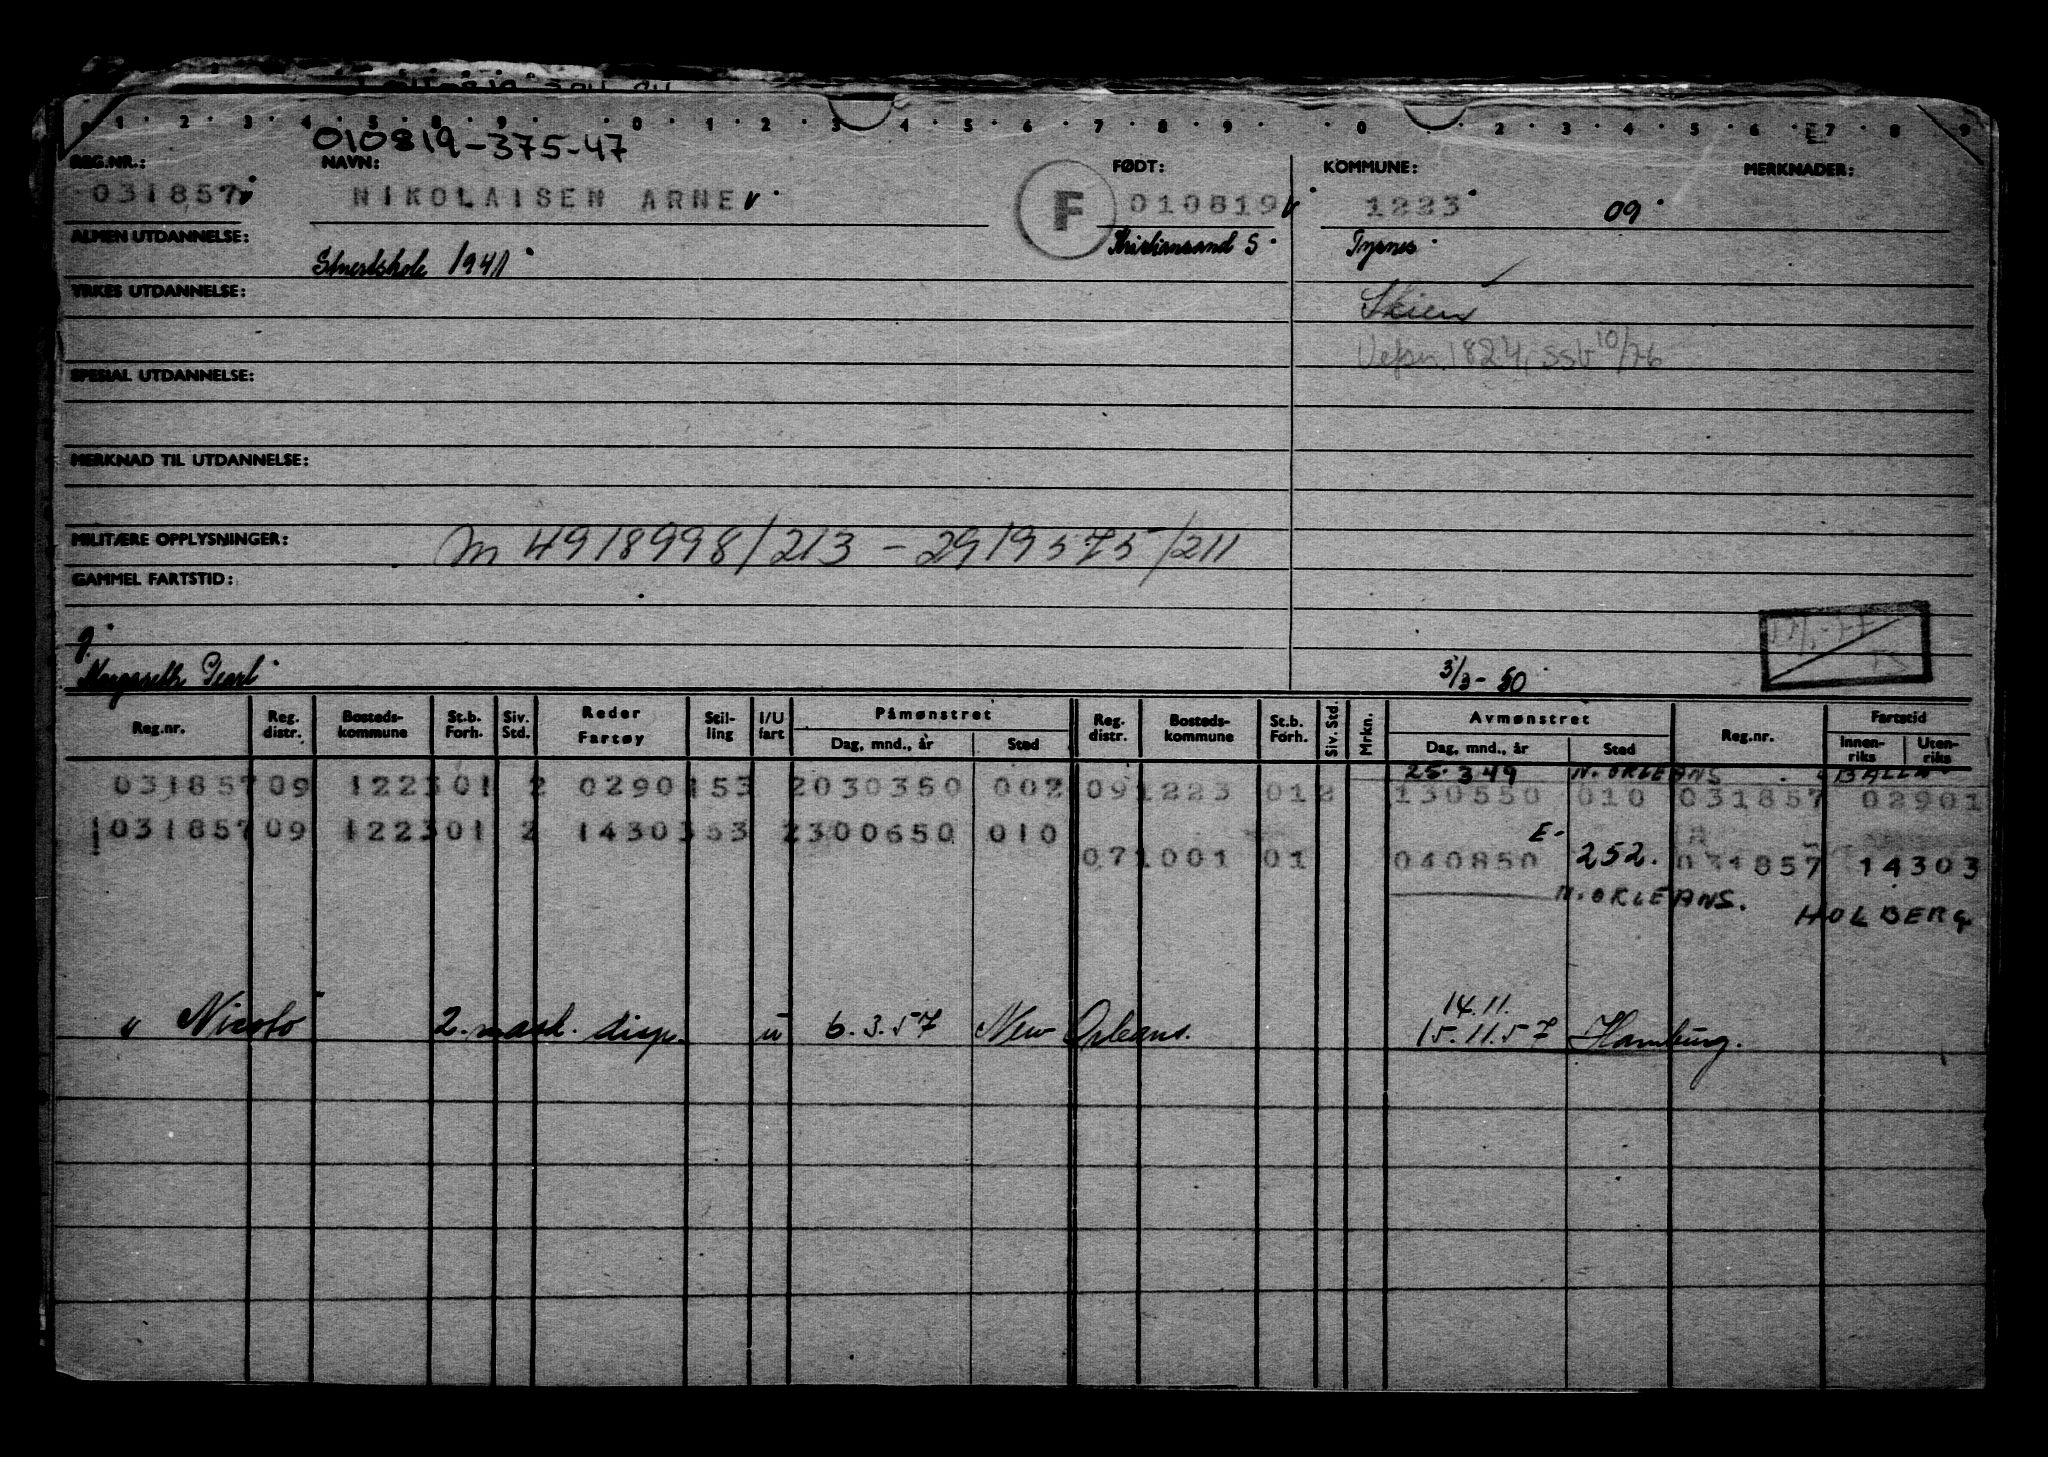 010819-375-47
REG.NR.: NAVN: FØDT: KOMMUNE: MERKNADER:
031857 NIKOLAISEN ARNE F 010819 1223 09
ALMEN UTDANNELSE: Kristiansand S Tysnes
1941
YRKES UTDANNELSE: Skien
1824, SSB 10/76
SPESIAL UTDANNELSE:
MERKNAD TIL UTDANNELSE:
MILITÆRE OPPLYSNINGER: M 4918998/213 - 2919575/211
GAMMEL FARTSTID:
g.
Margareth Pearl 3/3-50
Reg.nr. Reg. distr. Bosteds-kommune St.b. Forh. Siv. Std. Reder Fartøy Stil-ling I/U fart Påmønstret Dag, mnd., år Sted Reg. distr. Bosteds-kommune St.b. Forh. Siv. Std. Mrkn. Avmønstret Dag, mnd., år Sted Reg.nr. Fartstid Innen-riks Uten-riks
25.3.49 N. ORLEANS
031857 09 1223 01 2 0290153 2030350 002 09 1223 01 2 130550 010 031857 02901
031857 09 1223 01 2 1430353 2300650 010
E-
07 1001 01 040850 252. 031857 14303
N. ORLEANS. HOLBERG
14.11.
" Nicoto 2. mask. disp. u 6.3.57 New Orleans. 15.11.57 Hamburg.